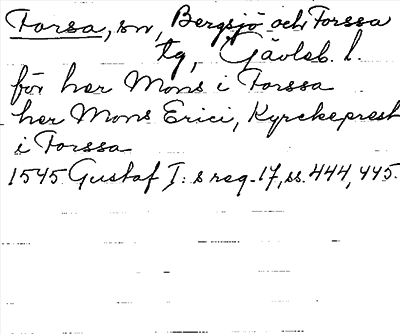 Forsa, sn, Bergsjö och Forssa
tg, Gävleb. l.
för her Mons i Forssa
her Mons Erici, Kyrckeprest
i Forssa
1545 Gustaf I:s reg. 17, ss. 444, 445.